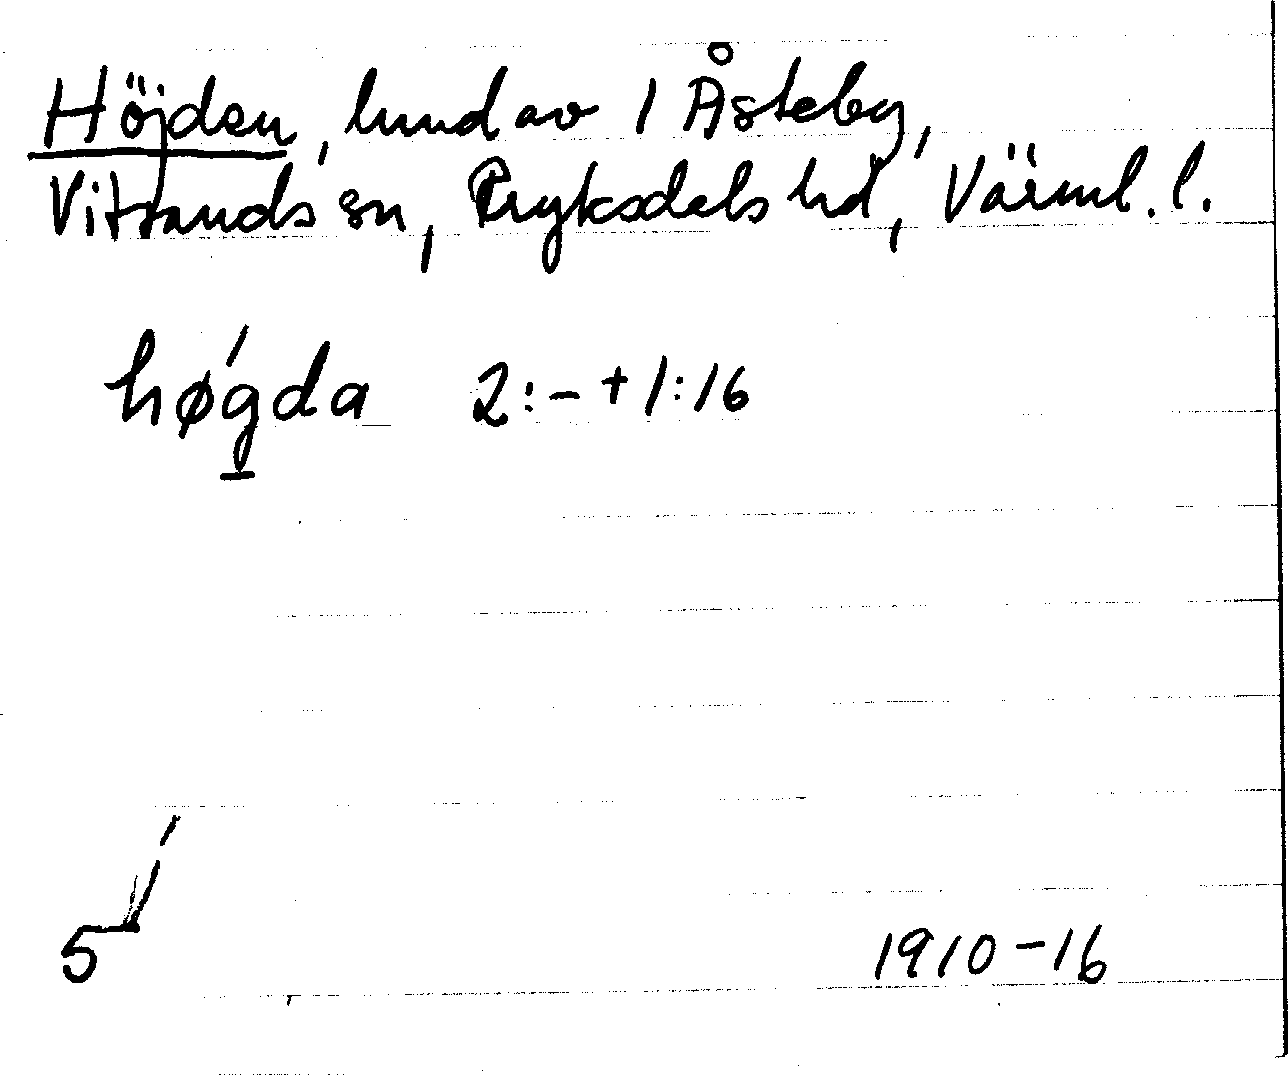 Höjden, hmd av 1 Åsteby,
Vitsands sn, Fryksdals hd, Värml. l.
høǵda 2:- + 1:16
5
1910-16